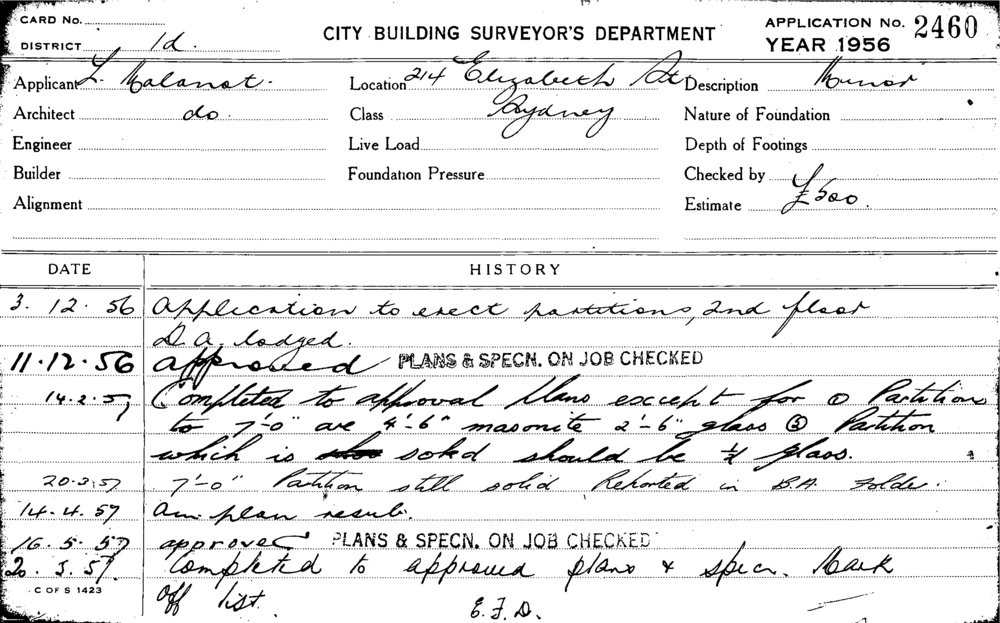 CARD No.
DISTRICT 1d.
CITY BUILDING SURVEYOR'S DEPARTMENT
APPLICATION No. 2460
YEAR 1956
Applicant L. Malanot. Location 214 Elizabeth St Description Minor
Architect do. Class Sydney Nature of Foundation
Engineer Live Load Depth of Footings
Builder Foundation Pressure Checked by
Alignment Estimate £500.
DATE HISTORY
3. 12. 56 Application to erect partitions, 2nd floor
D.A. lodged.
11.12.56 approved PLANS & SPECN. ON JOB CHECKED
14.2.57 Completed to approval plans except for ① Partition
to 7-0" are 4'-6" masonite 2'-6" glass ② Partition
which is solid should be ½ glass.
20.3.57 7'-0" Partition still solid Reported in B.A. Folder.
14.4.57 Am. plan resub.
16.5.57 approved PLANS & SPECN. ON JOB CHECKED
20.5.57. Completed to approved plans & specn. Mark
off list. E.F.D.
C OF S 1423